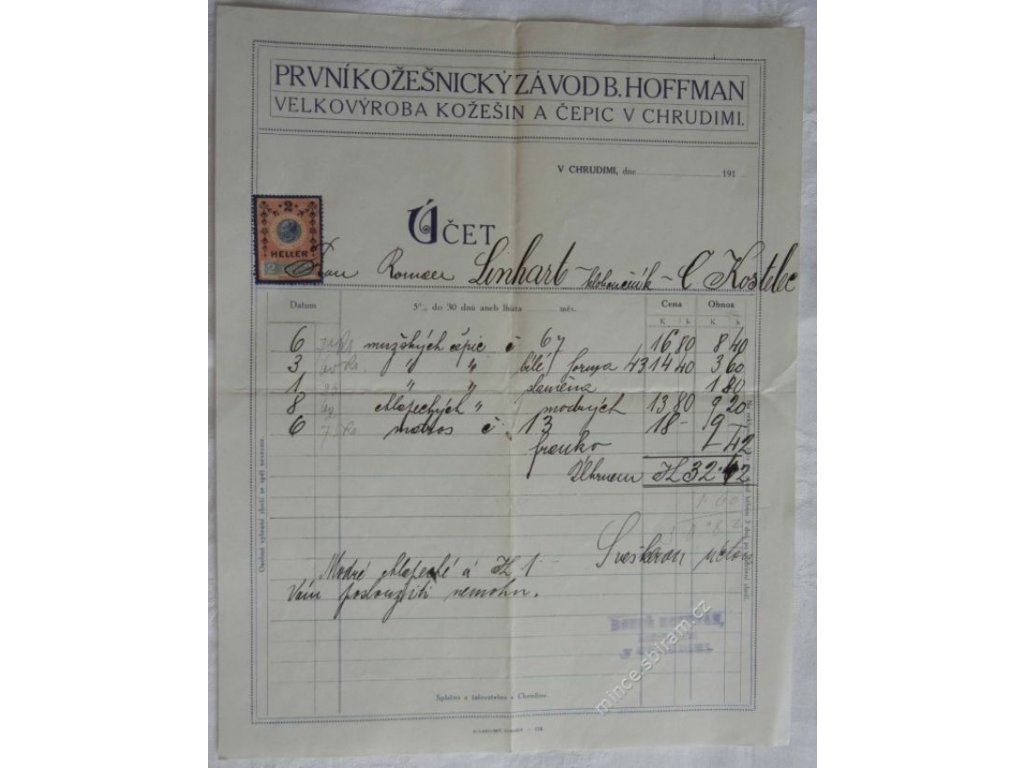 PRVNÍ KOŽEŠNICKÝ ZÁVOD B. HOFFMAN
VELKOVÝROBA KOŽEŠIN A ČEPIC V CHRUDIMI.
V CHRUDIMI, dne 191
2
HELLER
2
ÚČET
Pan Roman Linhart Kloboučník - C Kostelec
Datum 5% do 30 dnů aneb lhůta měs. Cena Obnos
K h K h
6 mužských čepic č 67 16 80 8 40
3 " " bílé forma 43 14 40 3 60
1 " " slaměna 1 80
8 chlapeckých " modrých 13 80 9 20
6 matros č. 13 18 - 9 -
franko - 42
Úhrnem K 32.42
S veškerou úctou
Modré chlapecké á K 1 -
Vám posloužiti nemohu.
V CHRUDIMI.
Osobně vybrané zboží se zpět nevezme.
Splatno a žalovatelno v Chrudimi.
mince.sbiram.cz